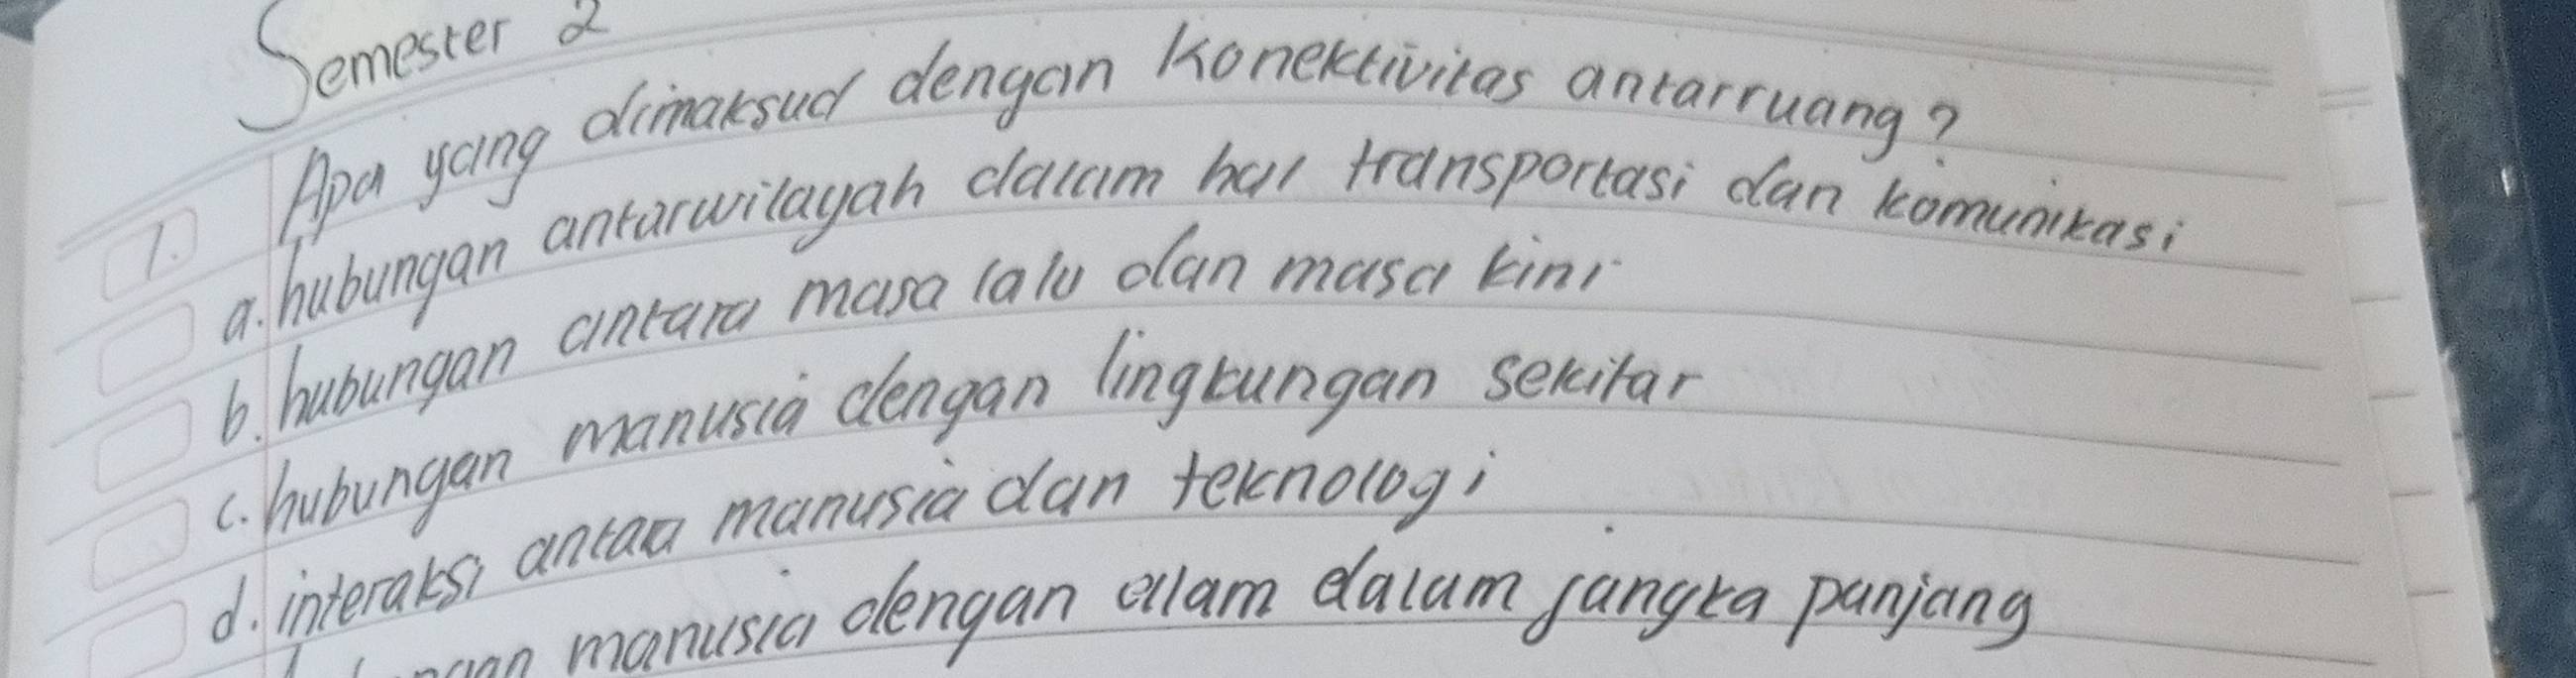 Semester 2
1. Apa yang dimaksud dengan Konektivitas antarruang?
a. hubungan antarwilayah dalam hal transportasi dan komunikasi
b. hubungan antara masa lalu dan masa kini
c. hubungan manusia dengan lingkungan sekitar
d. interaksi antara manusia dan teknologi
manusia dengan alam dalam jangka panjang